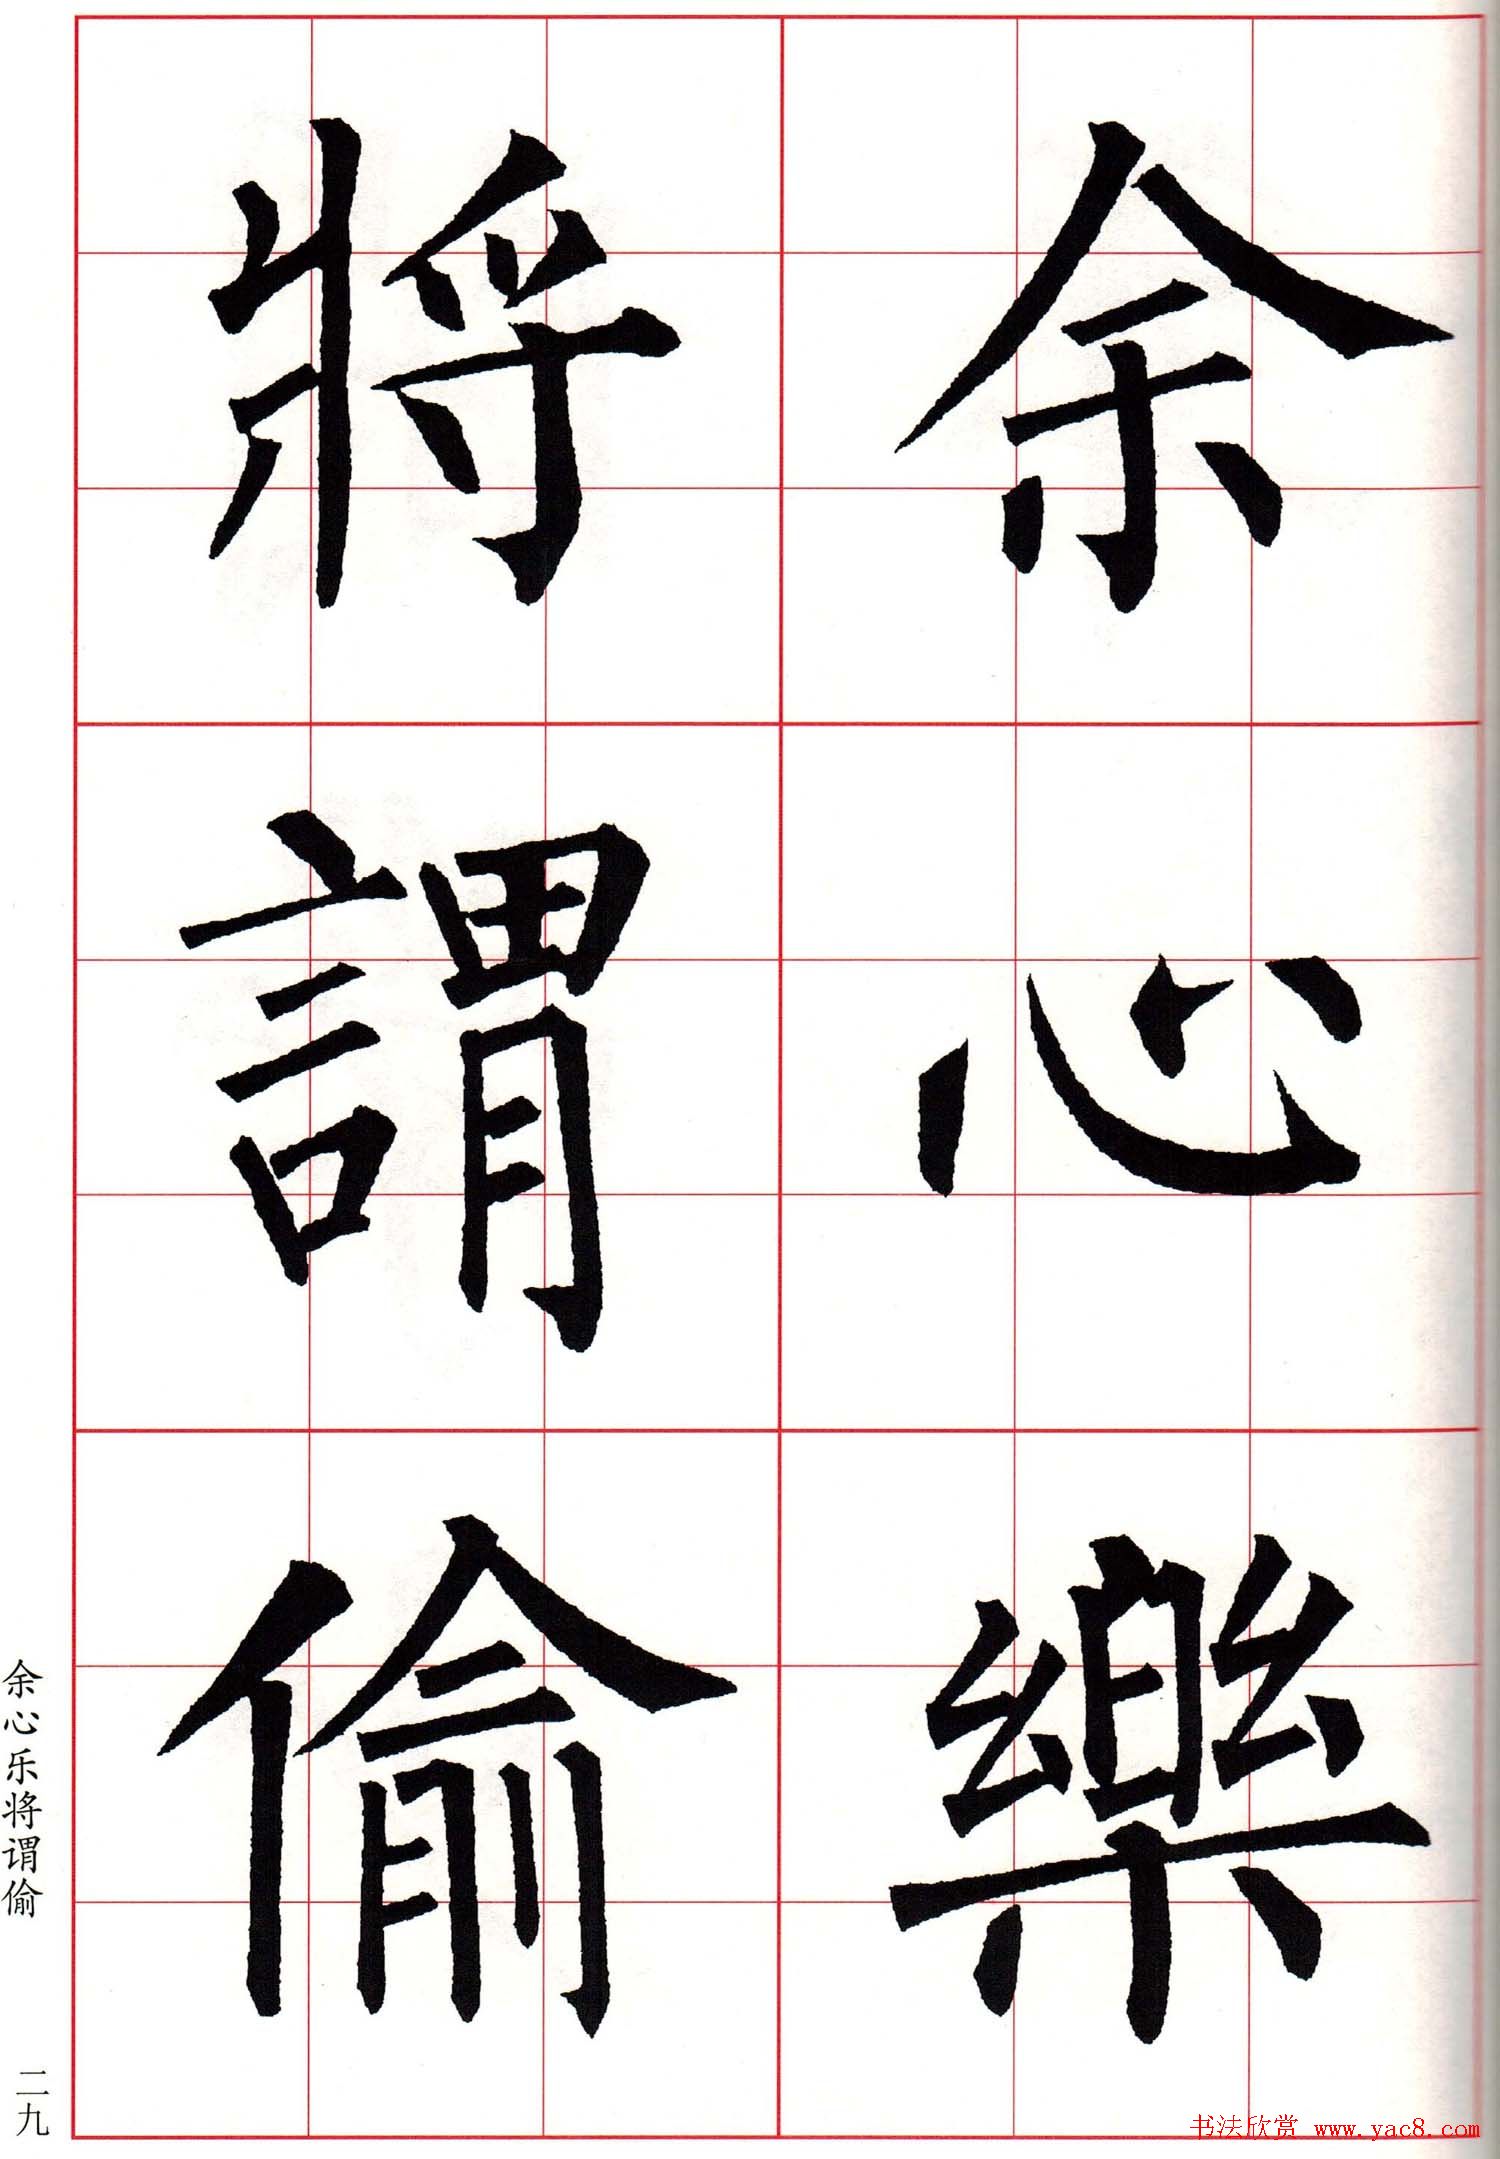 余心樂
將謂偷
余心乐将谓偷
二九
书法欣赏 www.yac8.com